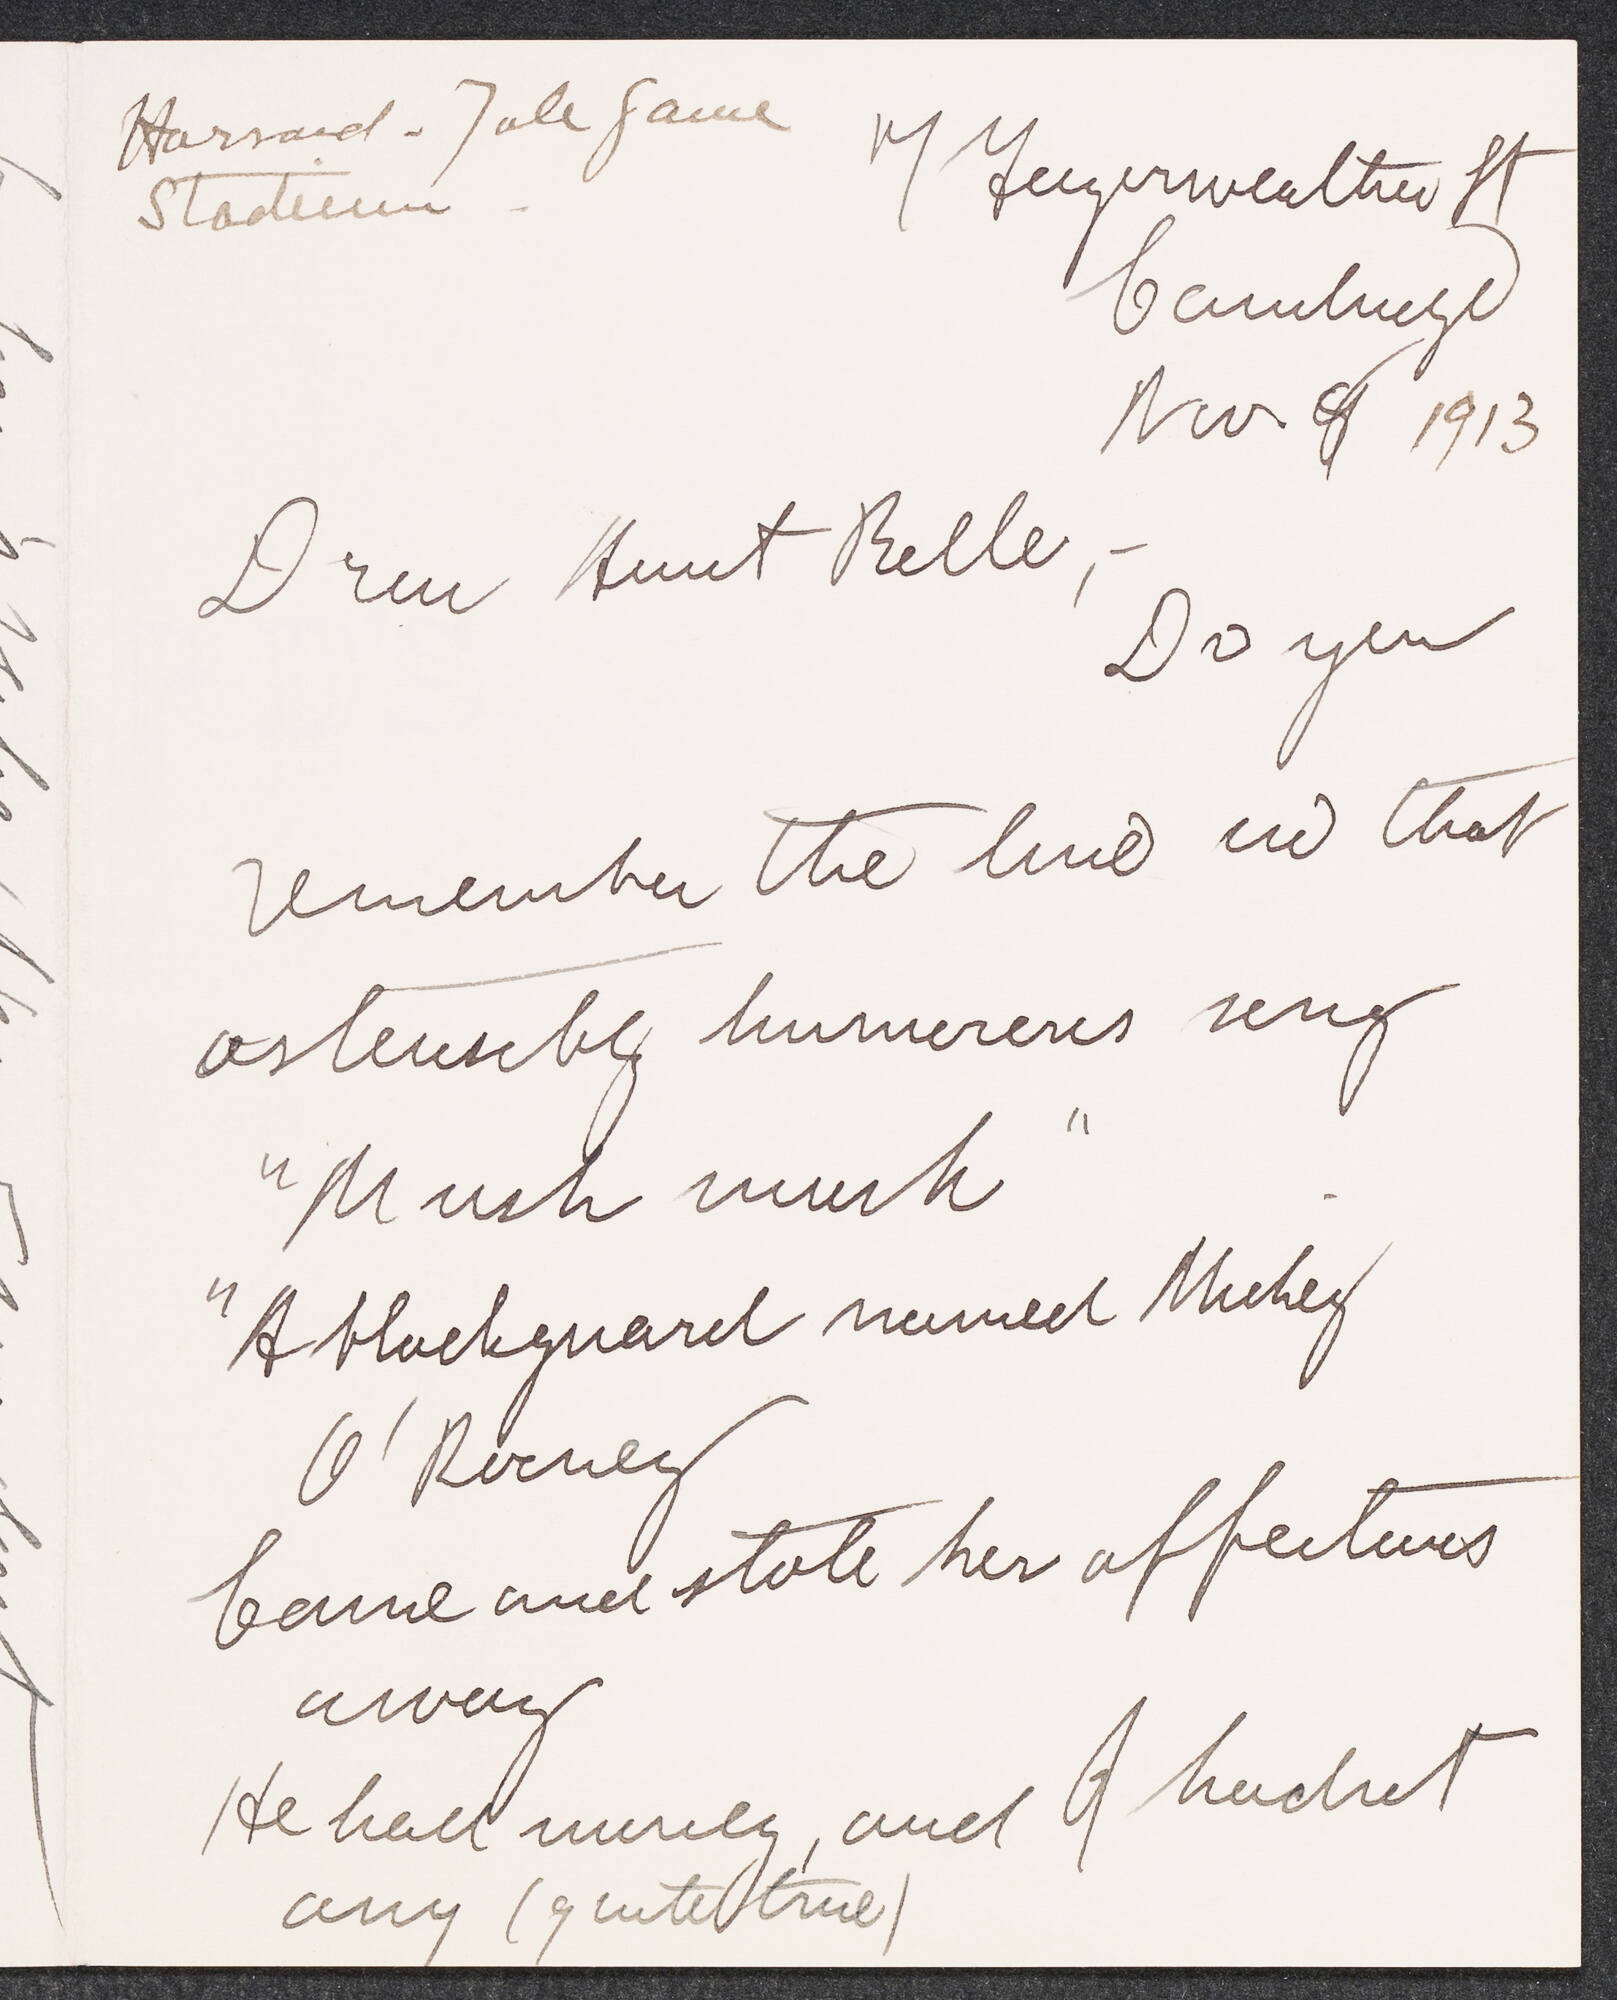 Harvard - Yale Game
Stadium -
17 Fayerweather St
Cambridge
Nov. 9 1913
Dear Aunt Belle, -
Do you
remember the line in that
ostensibly humorous song
"Mush mush"
"A blackguard named Mickey
O'Rooney
Came and stole her affections
away
He had money, and I hadn't
any (quite true)